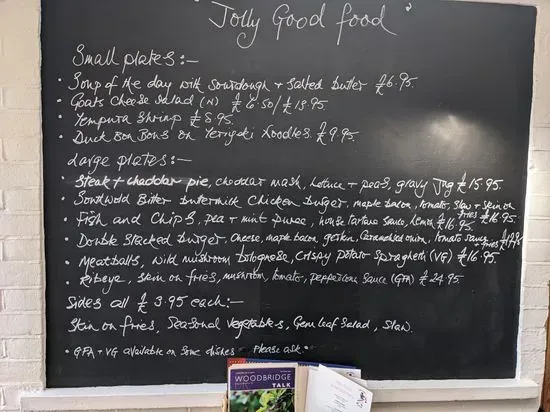 "Jolly Good food"
Small plates:-
• Soup of the day with Sourdough + Salted butter £6.95.
• Goats Cheese Salad (N) £ 6.50/£13.95
• Tempura Shrimp £8.95.
• Duck Bon Bons on Teriyaki Noodles £9.95.
Large plates:-
• Steak + cheddar pie, cheddar mash, lettuce + peas, gravy Jug £15.95.
• Southwold Bitter + buttermilk Chicken burger, maple bacon, tomato, slaw + skin on fries £16.95.
• Fish and Chips, pea + mint puree, house tartare sauce, lemon £16.95.
• Double Stacked burger, cheese, maple bacon, gerkin, Caramelised onion, tomato sauce fries
• Meatballs, wild mushroom bolognese, Crispy potato Spiragheth (VG) £16.95.
• Ribeye, skin on fries, mushroom, tomato, peppercorn sauce (GFA) £24.95.
Sides all £3.95 each:-
Skin on fries, Seasonal vegetables, Gem leaf Salad, Slaw.
• GFA + VG available on Some dishes - Please ask •
WOODBRIDGE
TALK